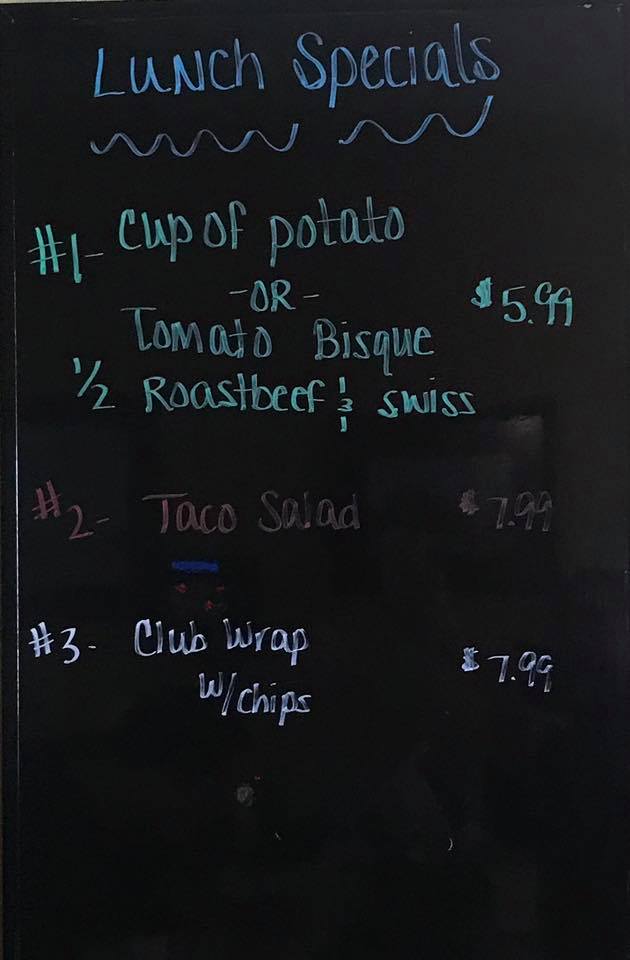 Lunch Specials
#1- Cup of potato
-OR-
Tomato Bisque $5.99
1/2 Roastbeef & swiss
#2- Taco Salad $7.99
#3- Club Wrap
W/chips $7.99